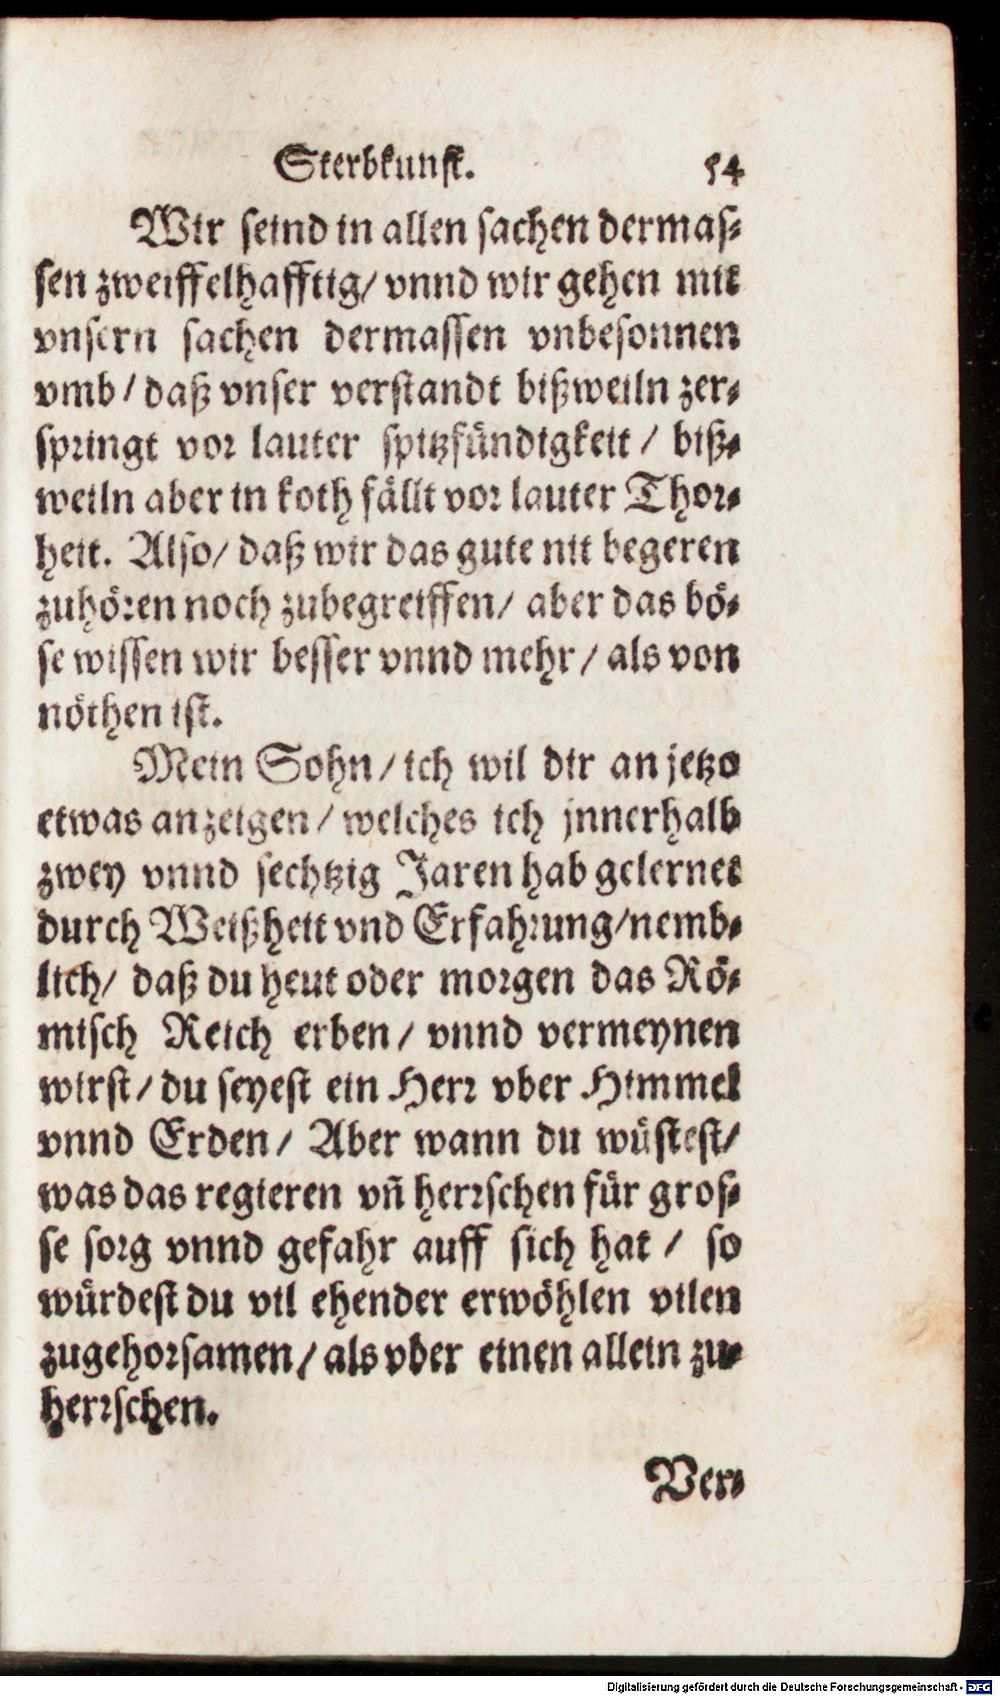 Sterbkunſt. 54
Wir ſeind in allen ſachen dermaſ⸗
ſen zweiffelhafftig/ vnnd wir gehen mit
vnſern ſachen dermaſſen vnbeſonnen
vmb/ daß vnſer verſtandt bißweiln zer⸗
ſpringt vor lauter ſpitzfündigkeit/ biß⸗
weiln aber in koth fällt vor lauter Thor⸗
heit. Alſo/ daß wir das gute nit begeren
zuhören noch zubegreiffen/ aber das bö⸗
ſe wiſſen wir beſſer vnnd mehr/ als von
nöthen iſt.
Mein Sohn/ ich wil dir an jetzo
etwas anzeigen/ welches ich jnnerhalb
zwey vnnd ſechtzig Jaren hab gelernet
durch Weißheit vnd Erfahrung/ nemb⸗
lich/ daß du heut oder morgen das Rö⸗
miſch Reich erben/ vnnd vermeynen
wirſt/ du ſeyeſt ein Herr vber Himmel
vnnd Erden/ Aber wann du wüſteſt/
was das regieren vñ herrſchen für groſ⸗
ſe ſorg vnnd gefahr auff ſich hat/ ſo
würdeſt du vil ehender erwöhlen vilen
zugehorſamen/ als vber einen allein zu⸗
herrſchen.
Ver⸗
Digitalisierung gefördert durch die Deutsche Forschungsgemeinschaft - DFG